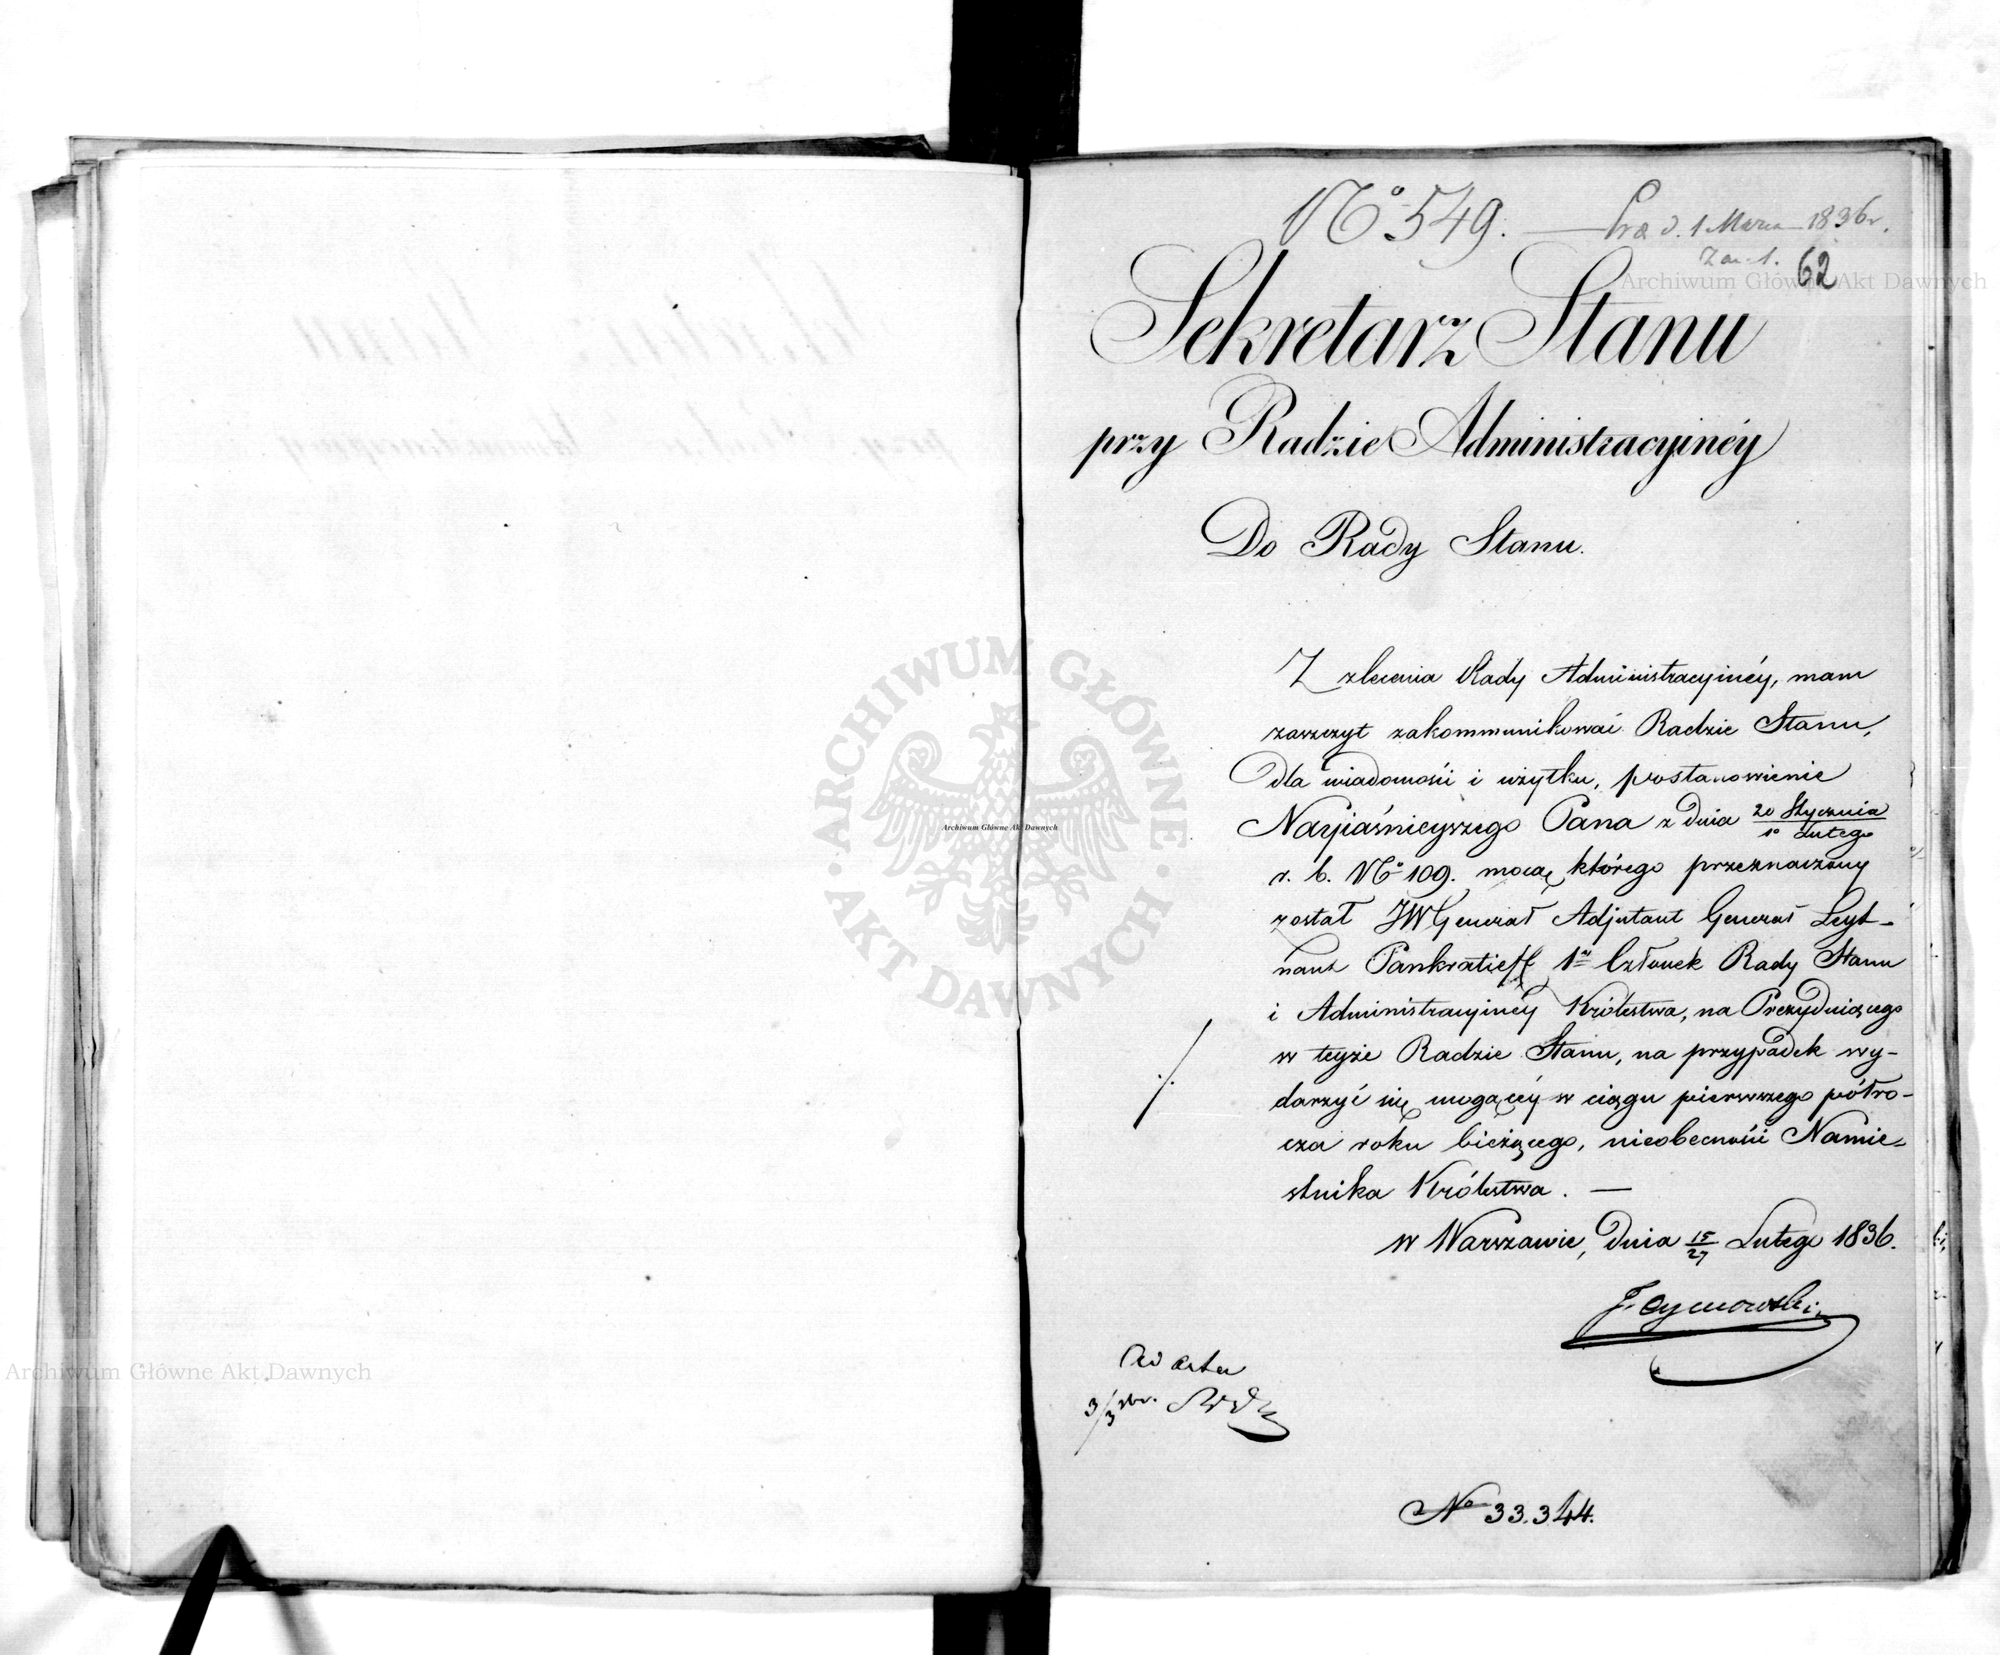 No 549. — Præ d. 1 Marca 1836 r.
Zał. 1.
62
Sekretarz Stanu
przy Radzie Administracyinéy
Do Rady Stanu.
Z zlecenia Rady Administracyinéy, mam
zaszczyt zakommunikować Radzie Stanu,
dla wiadomości i użytku, postanowienie
Nayjaśnieyszego Pana z dnia 20 Stycznia / 1o Lutego
r. b. No 109. mocą którego przeznaczony
został JW Generał Adjutant Generał Leyt-
nant Pankratieff 1szy Członek Rady Stanu
i Administracyinéy Królestwa, na Prezyduiącego
w teyże Radzie Stanu, na przypadek wy-
darzyć się mogącéy w ciągu pierwszego półro-
cza roku bieżącego, nieobecności Namie-
stnika Królestwa. —
w Warszawie, dnia 15/27 Lutego 1836.
J. Tymowski
Ad acta
3/3
No 33.344.
Archiwum Główne Akt Dawnych
Archiwum Główne Akt Dawnych
Archiwum Główne Akt Dawnych
ARCHIWUM GŁÓWNE · AKT DAWNYCH ·